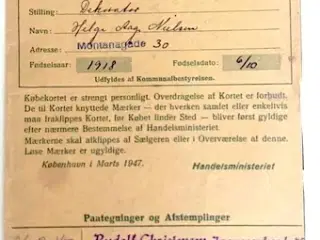 Stilling: Dekoratør
Navn: Helge Aag Nielsen
Adresse: Montanagade 30
Fødselsaar: 1918 Fødselsdato: 6/10
Udfyldes af Kommunalbestyrelsen.
Købekortet er strengt personligt. Overdragelse af Kortet er forbudt.
De til Kortet knyttede Mærker — der hverken samlet eller enkeltvis
maa fraklippes Kortet, før Købet finder Sted — bliver først gyldige
efter nærmere Bestemmelse af Handelsministeriet.
Mærkerne skal afklippes af Sælgeren eller i Overværelse af denne.
Løse Mærker er ugyldige.
København i Marts 1947. Handelsministeriet
Paategninger og Afstemplinger
Rudolf